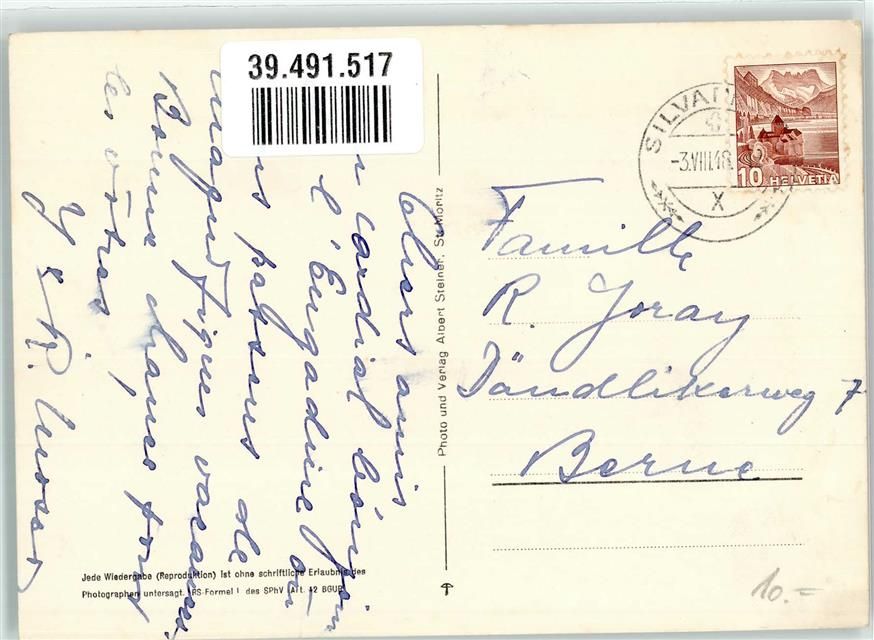 39.491.517
Chers amis
cordial bonjour
l'Engadine où
passons de
magnifiques vacances.
Bonne chance tous
les vôtres
Y & R. Moser
Photo und Verlag Albert Steiner, St. Moritz
SILVA
-3.VIII.48.
X
10 HELVETIA
Famille
R. Joray
Dändlikerweg 7
Berne
Jede Wiedergabe (Reproduktion) ist ohne schriftliche Erlaubnis des
Photographen untersagt. (RS-Formel I des SPhV (Art. 42 BGUR)
10.-